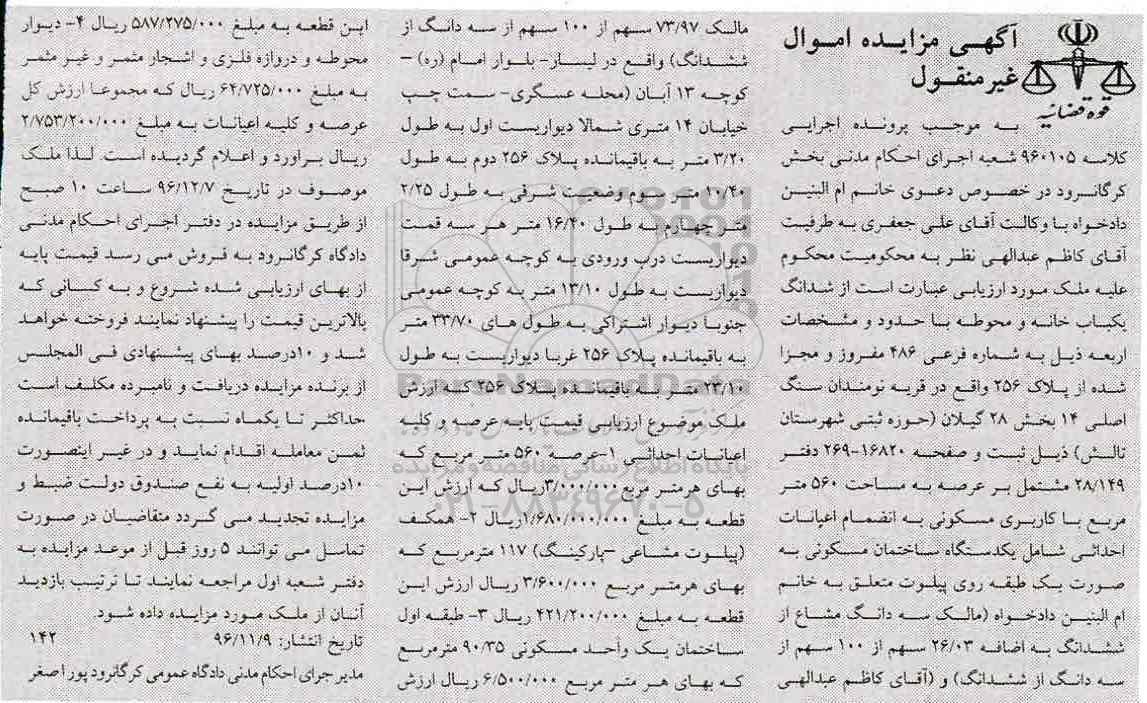 آگهی مزایده اموال
غیرمنقول
قوه قضائیه
به موجب پرونده اجرایی
کلاسه ۹۶۰۱۰۵ شعبه اجرای احکام مدنی بخش
کرگانرود در خصوص دعوی خانم ام البنین
دادخواه با وکالت آقای علی جعفری به طرفیت
آقای کاظم عبدالهی نظر به محکومیت محکوم
علیه ملک مورد ارزیابی عبارت است از شدانگ
یکباب خانه و محوطه با حدود و مشخصات
اربعه ذیل به شماره فرعی ۴۸۶ مفروز و مجزا
شده از پلاک ۲۵۶ واقع در قریه نومندان سنگ
اصلی ۱۴ بخش ۲۸ گیلان (حوزه ثبتی شهرستان
تالش) ذیل ثبت و صفحه ۱۶۸۲۰-۲۶۹ دفتر
۲۸/۱۴۹ مشتمل بر عرصه به مساحت ۵۶۰ متر
مربع با کاربری مسکونی به انضمام اعیانات
احداثی شامل یکدستگاه ساختمان مسکونی به
صورت یک طبقه روی پیلوت متعلق به خانم
ام البنین دادخواه (مالک سه دانگ مشاع از
ششدانگ به اضافه ۲۶/۰۳ سهم از ۱۰۰ سهم از
سه دانگ از ششدانگ) و (آقای کاظم عبدالهی
مالک ۷۳/۹۷ سهم از ۱۰۰ سهم از سه دانگ از
ششدانگ) واقع در لیسار- بلوار امام (ره) –
کوچه ۱۳ آبان (محله عسگری- سمت چپ
خیابان ۱۴ متری شمالا دیواریست اول به طول
۳/۲۰ متر به باقیمانده پلاک ۲۵۶ دوم به طول
۱۰/۴۰ متر سوم وضعیت شرقی به طول ۲/۲۵
متر چهارم به طول ۱۶/۴۰ متر هر سه قمت
دیواریست درب ورودی به کوچه عمومی شرقا
دیواریست به طول ۱۳/۱۰ متر به کوچه عمومی
جنوبا دیوار اشتراکی به طول های ۳۳/۷۰ متر
به باقیمانده پلاک ۲۵۶ غربا دیواریست به طول
۲۳/۱۰ متر به باقیمانده پلاک ۲۵۶ که ارزش
ملک موضوع ارزیابی قیمت پایه عرصه و کلیه
اعیانات احداثی ۱-عرصه ۵۶۰ متر مربع که
بهای هرمتر مربع ۳/۰۰۰/۰۰۰ریال که ارزش این
قطعه به مبلغ ۱/۶۸۰/۰۰۰/۰۰۰ریال ۲- همکف
(پیلوت مشاعی –پارکینگ) ۱۱۷ مترمربع که
بهای هرمتر مربع ۳/۶۰۰/۰۰۰ ریال ارزش این
قطعه به مبلغ ۴۲۱/۲۰۰/۰۰۰ ریال ۳- طبقه اول
ساختمان یک واحد مسکونی ۹۰/۳۵ مترمربع
که بهای هر متر مربع ۶/۵۰۰/۰۰۰ ریال ارزش
این قطعه به مبلغ ۵۸۷/۲۷۵/۰۰۰ ریال ۴- دیوار
محوطه و دروازه فلزی و اشجار مثمر و غیر مثمر
به مبلغ ۶۴/۷۲۵/۰۰۰ ریال که مجموعا ارزش کل
عرصه و کلیه اعیانات به مبلغ ۲/۷۵۳/۲۰۰/۰۰۰
ریال براورد و اعلام گردیده است. لذا ملک
موصوف در تاریخ ۹۶/۱۲/۷ ساعت ۱۰ صبح
از طریق مزایده در دفتر اجرای احکام مدنی
دادگاه کرگانرود به فروش می رسد قیمت پایه
از بهای ارزیابی شده شروع و به کسانی که
بالاترین قیمت را پیشنهاد نمایند فروخته خواهد
شد و ۱۰درصد بهای پیشنهادی فی المجلس
از برنده مزایده دریافت و نامبرده مکلف است
حداکثر تا یکماه نسبت به پرداخت باقیمانده
ثمن معامله اقدام نماید و در غیر اینصورت
۱۰درصد اولیه به نفع صندوق دولت ضبط و
مزایده تجدید می گردد متقاضیان در صورت
تماسل می توانند ۵ روز قبل از موعد مزایده به
دفتر شعبه اول مراجعه نمایند تا ترتیب بازدید
آنان از ملک مورد مزایده داده شود.
تاریخ انتشار: ۹۶/۱۱/۹ ۱۴۲
مدیر جرای احکام مدنی دادگاه عمومی کرگانرود پور اصغر
ParsNamadData
پایگاه اطلاع رسانی مناقصه و مزایده
۰۲۱-۸۸۳۴۹۶۷۰-۵